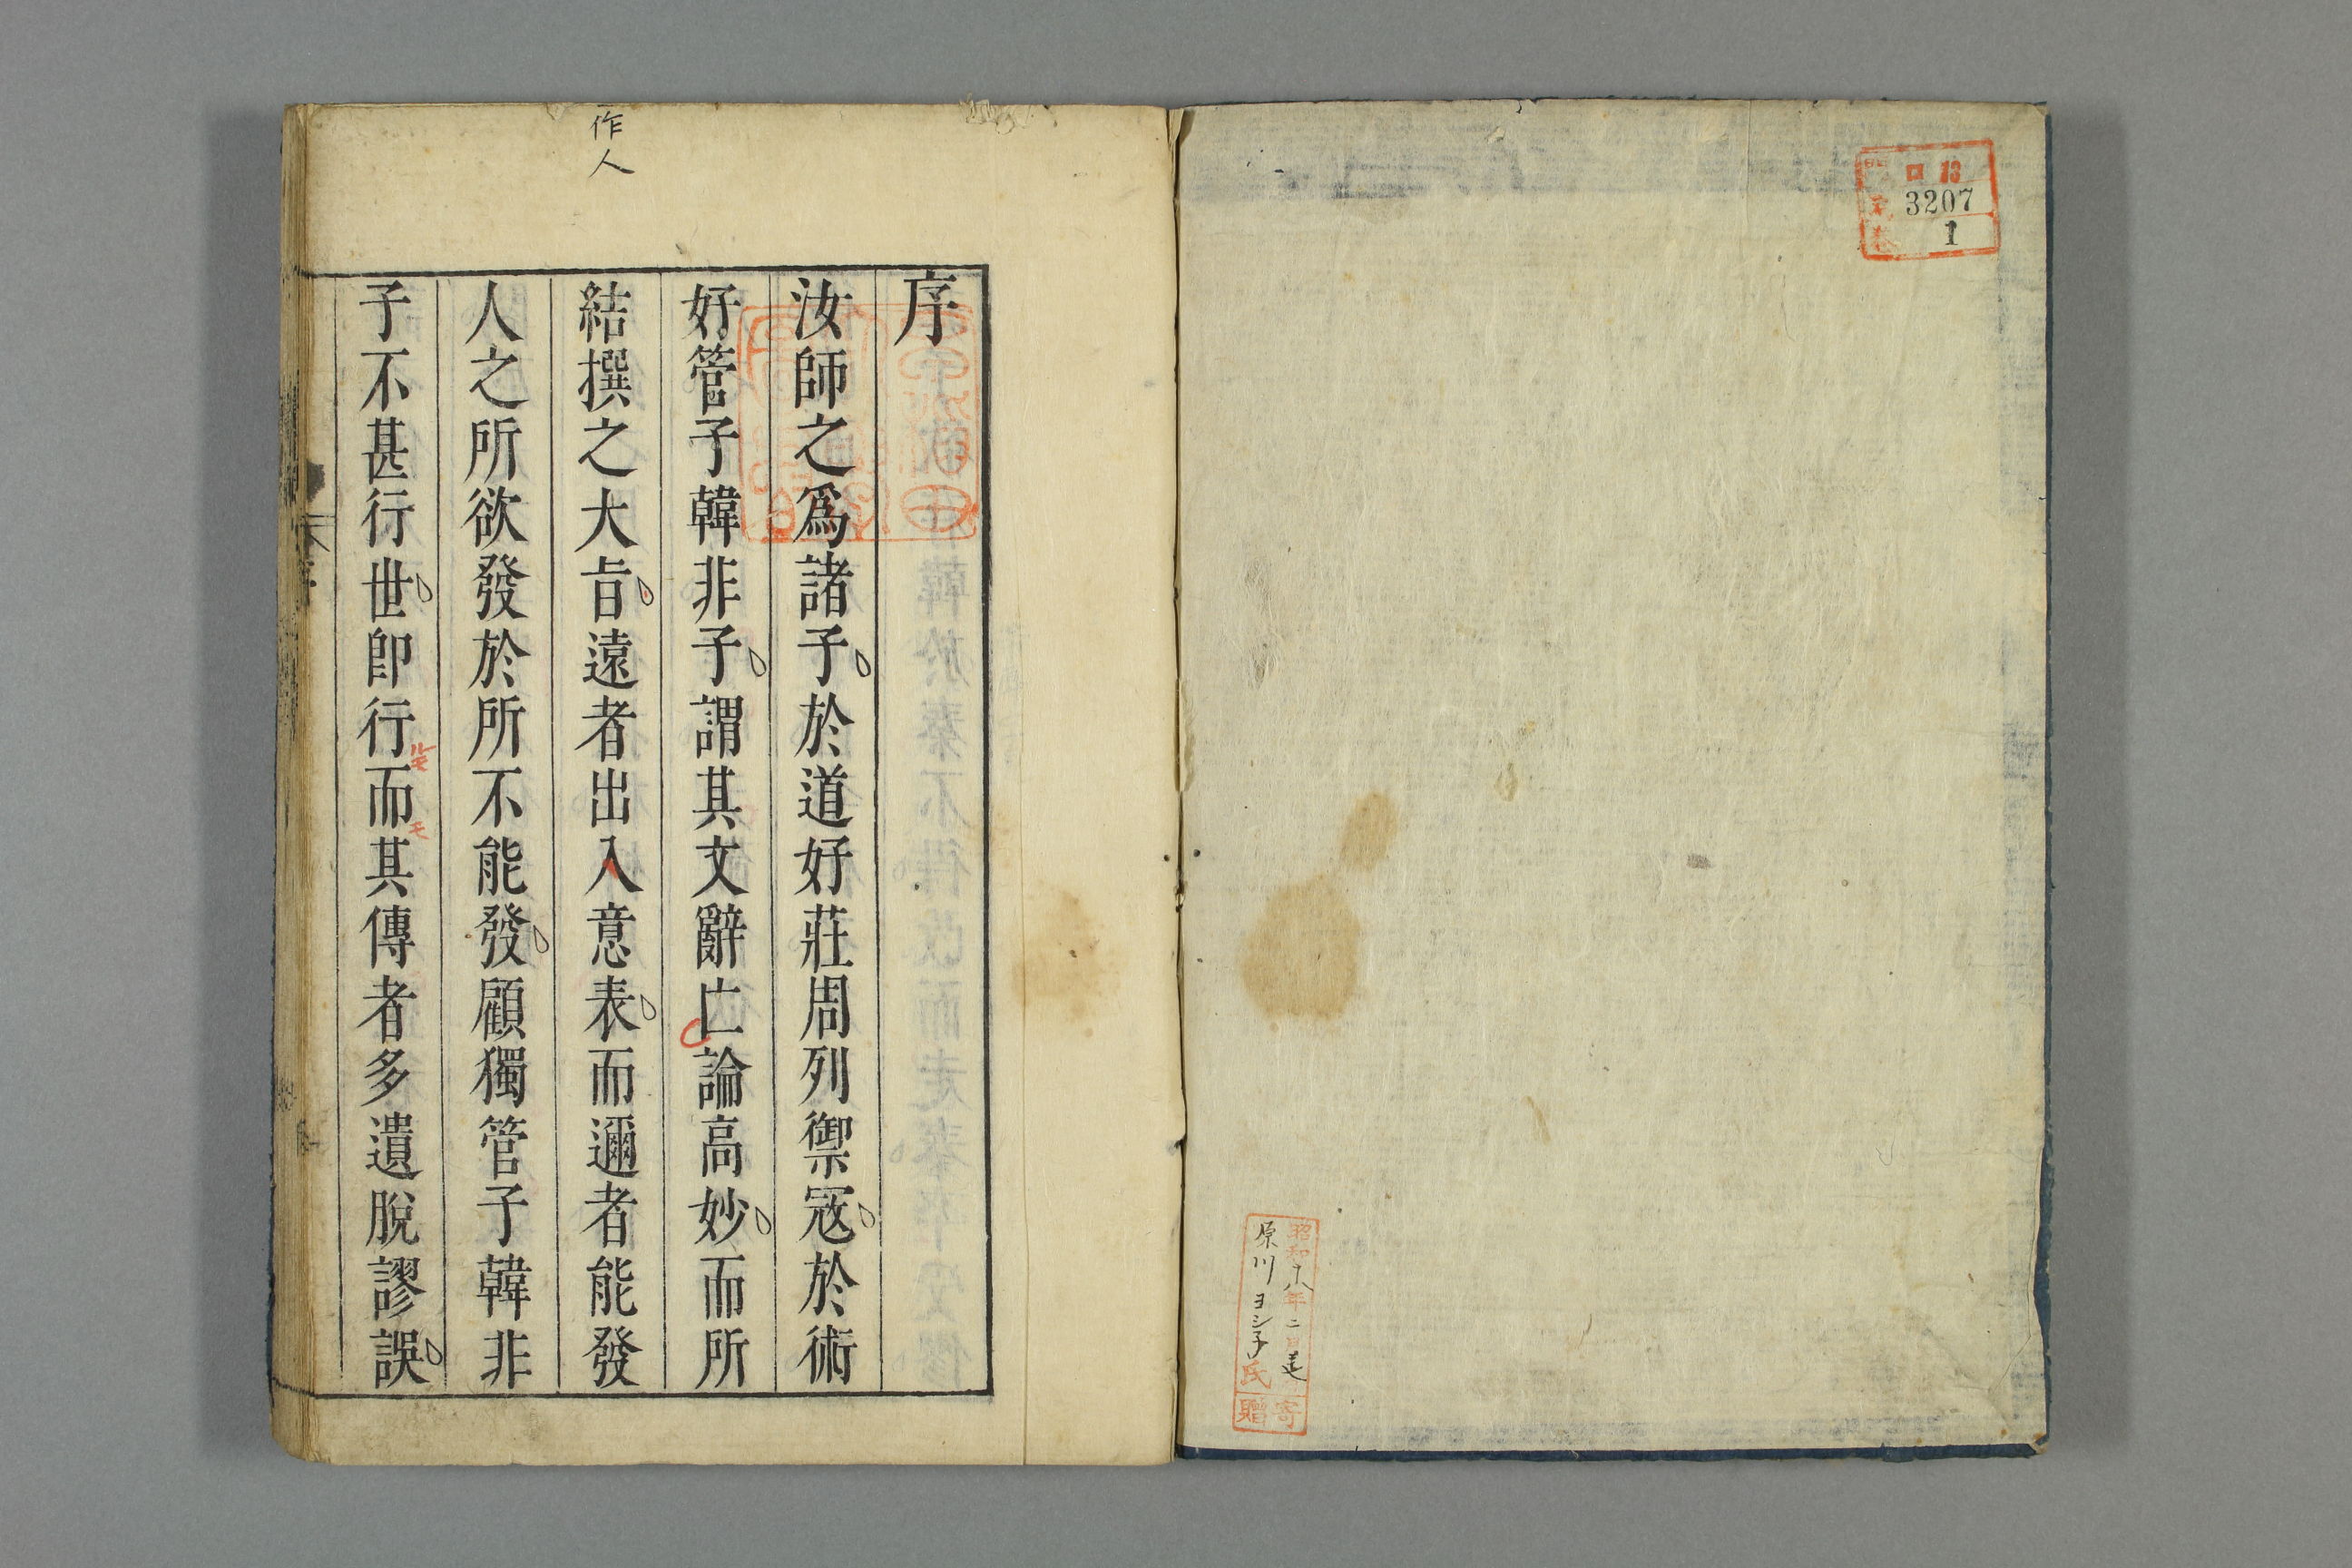 門 ロ 13
號 3207
卷 1
昭和十八年二月
原川ヨシ子氏
寄贈
序
汝師之爲諸子於道好莊周列禦寇於術
好管子韓非子謂其文辭亡論高妙而所
結撰之大旨遠者出入意表而邇者能發
人之所欲發於所不能發顧獨管子韓非
子不甚行世卽行而其傳者多遺脫謬誤
ルモ
モ
作
人